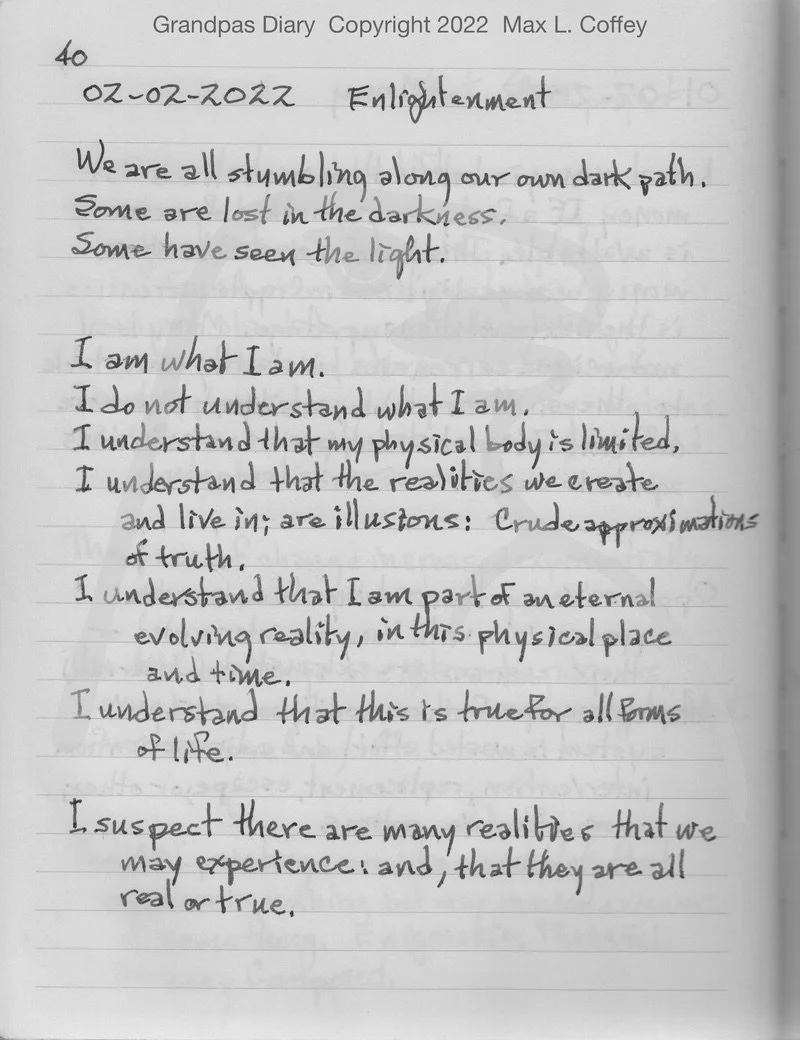 Grandpas Diary Copyright 2022 Max L. Coffey
40
02-02-2022 Enlightenment
We are all stumbling along our own dark path.
Some are lost in the darkness.
Some have seen the light.
I am what I am.
I do not understand what I am.
I understand that my physical body is limited,
I understand that the realities we create
and live in; are illusions: Crude approximations
of truth.
I understand that I am part of an eternal
evolving reality, in this physical place
and time.
I understand that this is true for all forms
of life.
I suspect there are many realities that we
may experience: and, that they are all
real or true.